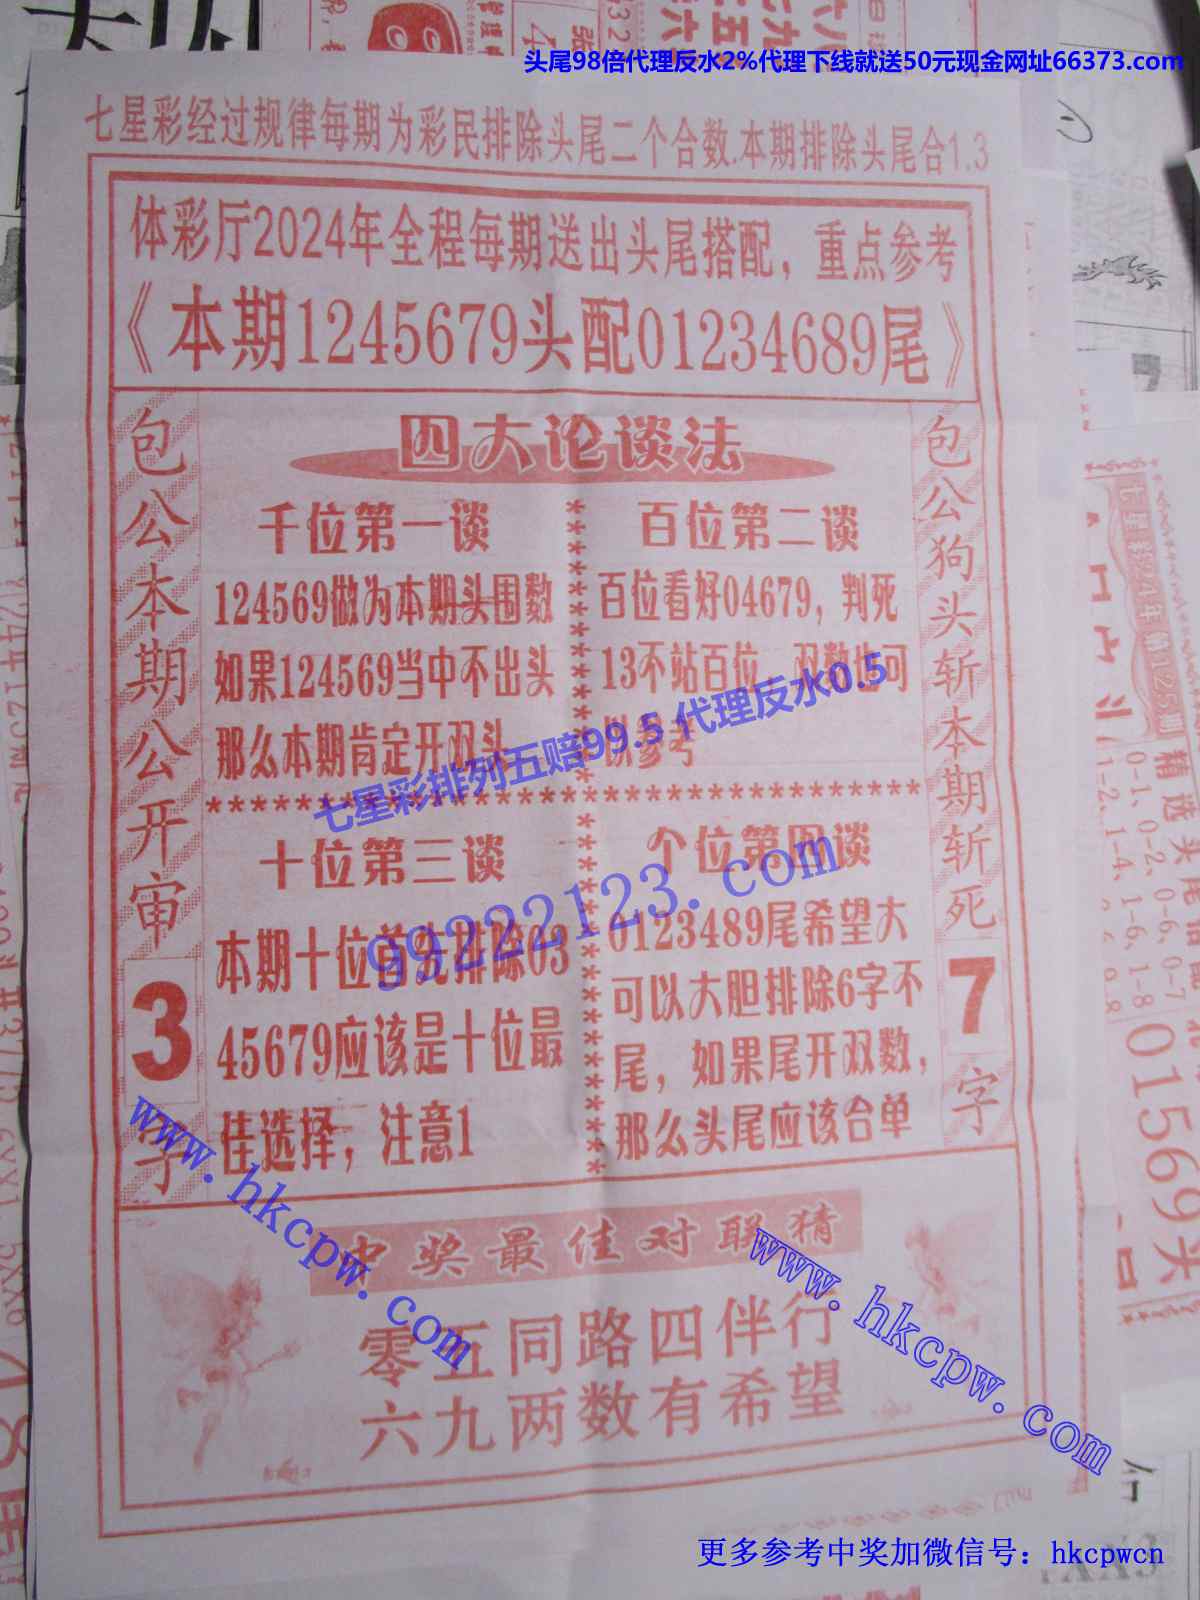 头尾98倍代理反水2%代理下线就送50元现金网址66373.com
七星彩经过规律每期为彩民排除头尾二个合数.本期排除头尾合1.3
体彩厅2024年全程每期送出头尾搭配，重点参考
《本期1245679头配01234689尾》
包公本期公开审3字
四大论谈法
千位第一谈
124569做为本期头围数
如果124569当中不出头
那么本期肯定开双头
百位第二谈
百位看好04679，判死
13不站百位，双数也可
以参考
七星彩排列五赔99.5 代理反水0.5
99222123.com
十位第三谈
本期十位首先排除03
45679应该是十位最
佳选择，注意1
个位第四谈
0123489尾希望大
可以大胆排除6字不
尾，如果尾开双数，
那么头尾应该合单
包公狗头斩本期斩死7字
www.hkcpw.com
中奖最佳对联猜
零五同路四伴行
六九两数有希望
www.hkcpw.com
精选头尾
0-1、0-2、0-6、0-7
1-2、1-4、1-6、1-8
01569头
更多参考中奖加微信号：hkcpwcn